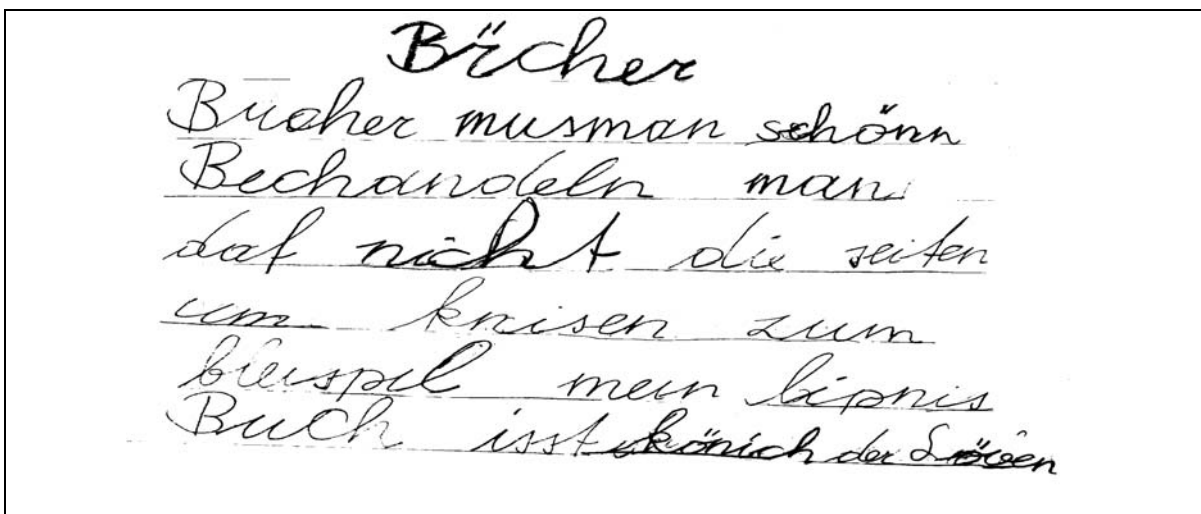 Bücher
Bücher musman schönn
Bechandeln man
daf nicht die seiten
um knisen zum
bleispil mein lipnis
Buch isst könich der Löwen